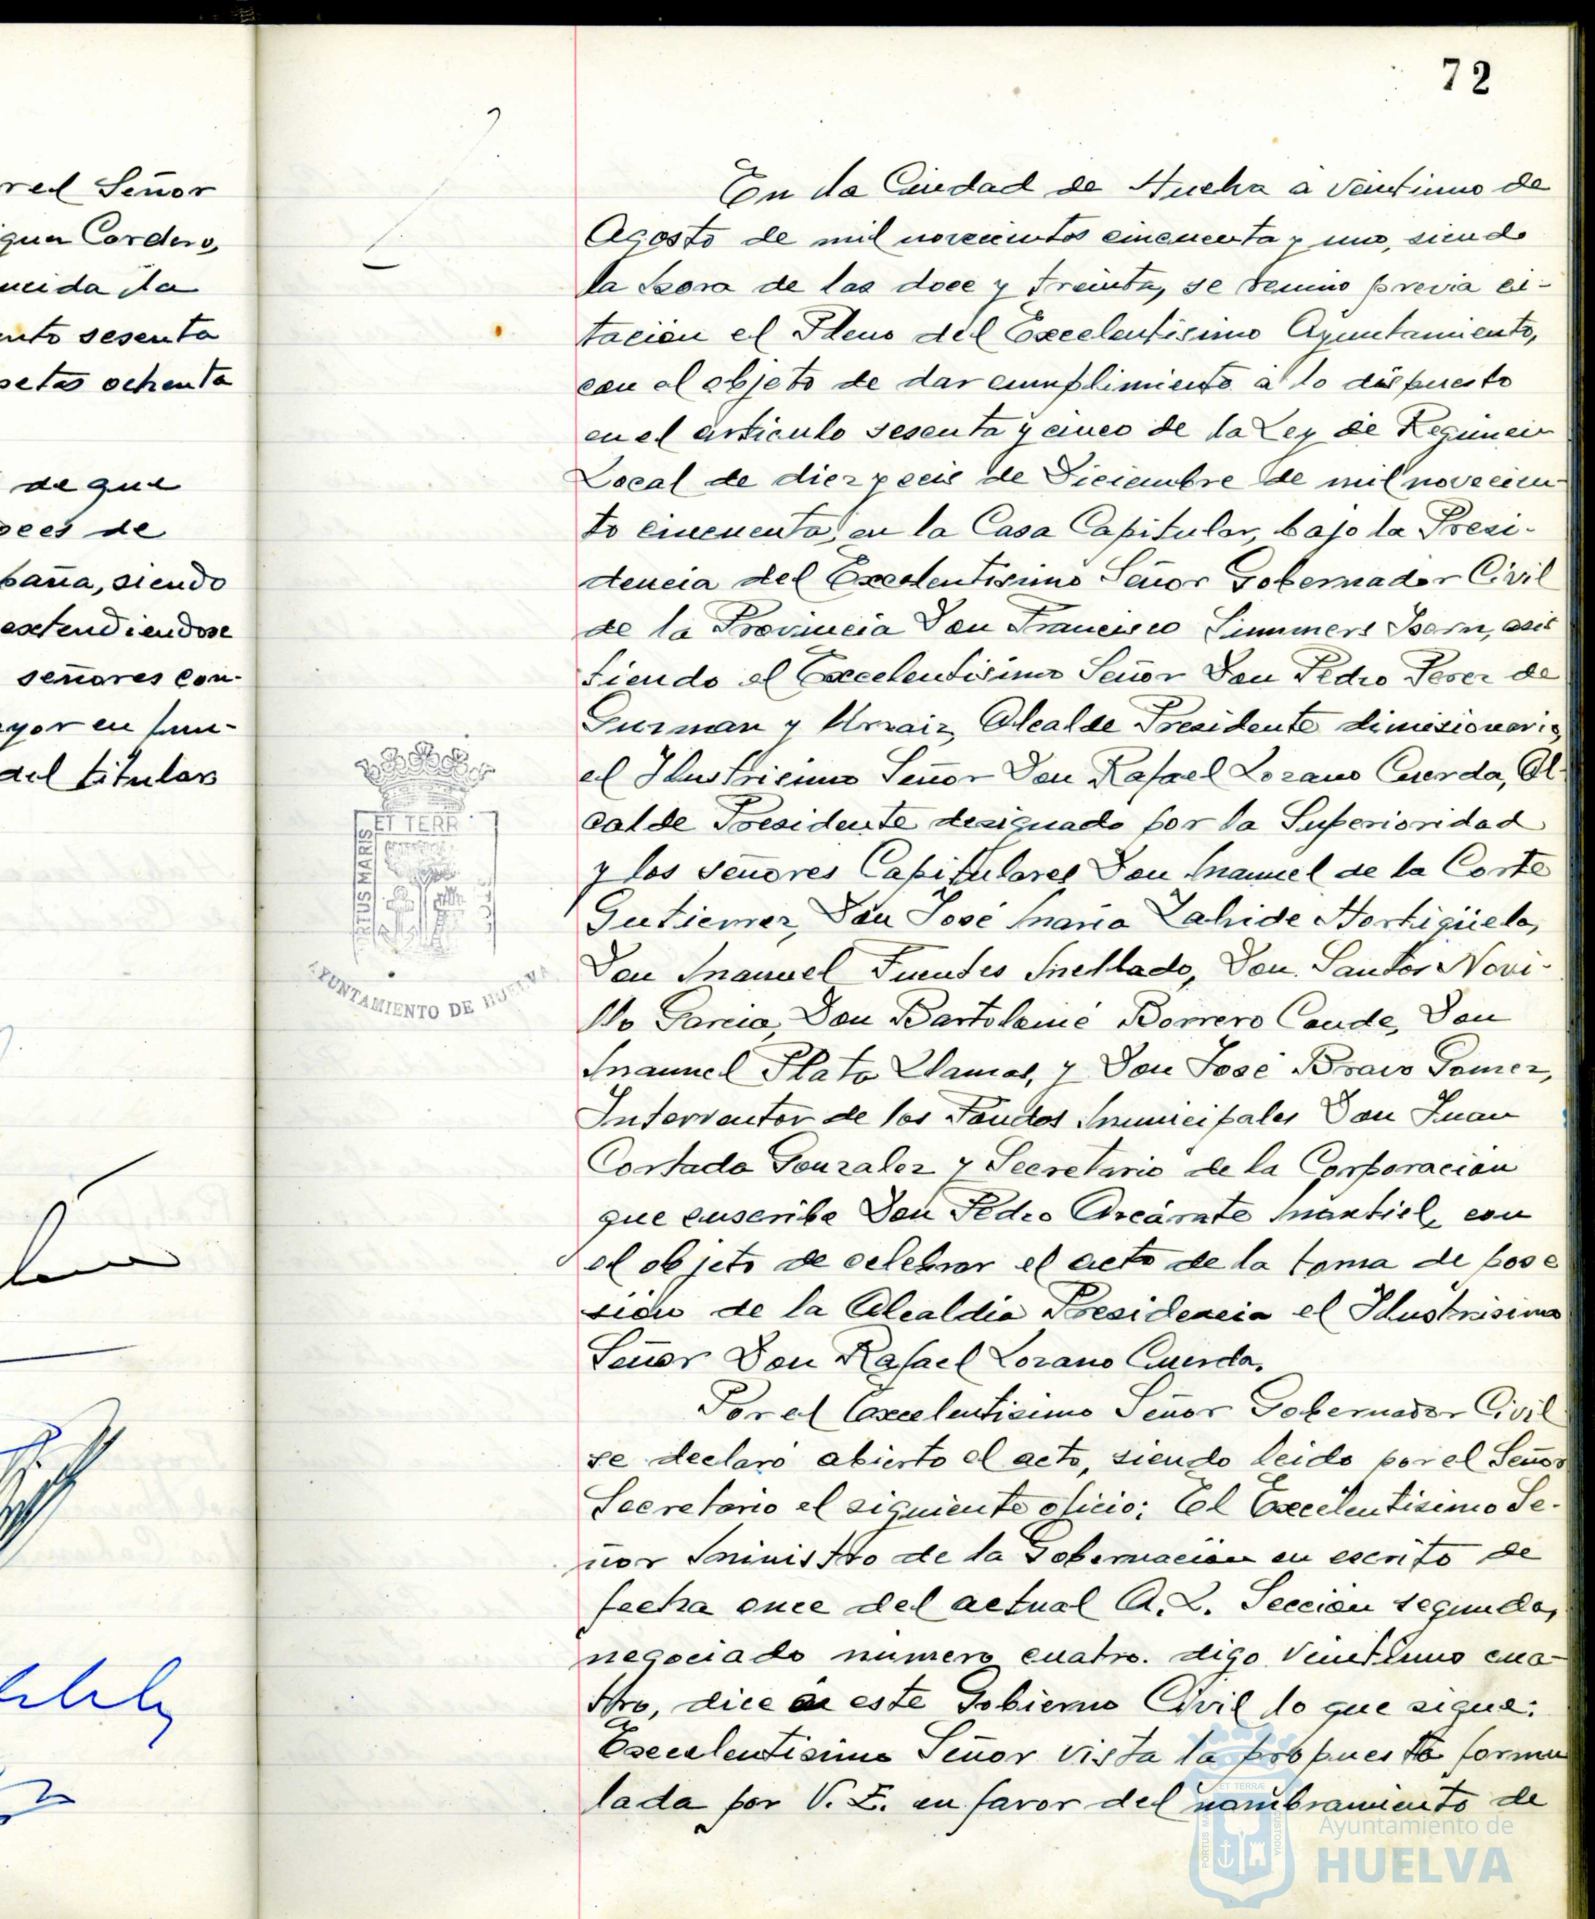 72
red Señor
guer Cordero,
ucida la
ento sesenta
setas ochenta
de que
oces de
paña, siendo
extendiendose
señores con-
ayor en fun-
del titular
En la Ciudad de Huelva a veintiuno de
Agosto de mil novecientos cincuenta y uno, siendo
la hora de las doce y treinta, se reunio previa ci-
tación el Pleno del Excelentisimo Ayuntamiento,
con el objeto de dar cumplimiento a lo dispuesto
en el articulo sesenta y cinco de la Ley de Regimen
Local de diez y seis de Diciembre de mil novecien-
to cincuenta, en la Casa Capitular, bajo la Presi-
dencia del Excelentisimo Señor Gobernador Civil
de la Provincia Don Francisco Summers Isern, asis
tiendo el Excelentisimo Señor Don Pedro Perez de
Guzman y Urzaiz, Alcalde Presidente dimisionario,
el Ilustrisimo Señor Don Rafael Lozano Cuerda, Al-
calde Presidente designado por la Superioridad
y los señores Capitulares Don Manuel de la Corte
Gutierrez, Don José Maria Zalvide Hortigüela,
Don Manuel Fuentes Mellado, Don Santos Novi-
llo Garcia, Don Bartolomé Borrero Conde, Don
Manuel Plata Llamas, y Don José Bravo Gomez,
Interventor de los Fondos Municipales Don Juan
Cortada Gonzalez y Secretario de la Corporación
que suscribe Don Pedro Azcárate Mantiel, con
el objeto de celebrar el acto de la toma de pose
sión de la Alcaldia Presidencia el Ilustrisimo
Señor Don Rafael Lozano Cuerda.
Por el Excelentisimo Señor Gobernador Civil
se declaró abierto el acto, siendo leido por el Señor
Secretario el siguiente oficio: El Excelentisimo Se-
ñor Ministro de la Gobernación en escrito de
fecha once del actual A.L. Sección segunda,
negociado numero cuatro. digo veintiuno cua-
tro, dice a este Gobierno Civil lo que sigue:
Excelentisimo Señor vista la propuesta formu
lada por V.E. en favor del nombramiento de
ET TERR
PORTUS MARIS
AYUNTAMIENTO DE HUELVA
ET TERRÆ
PORTUS MA
CUSTODIA
Ayuntamiento de
HUELVA